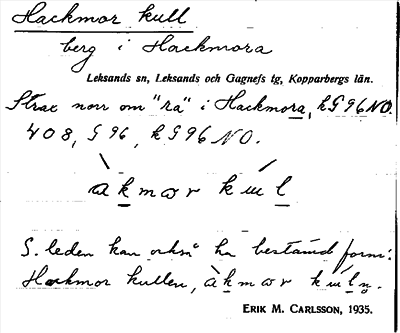 Hackmor kull
berg i Hackmora
Leksands sn, Leksands och Gagnefs tg, Kopparbergs län.
Strax norr om "ra" i Hackmora, k G 96 NO.
408, G 96, k G 96 NO.
àkmor kul
S. leden kan också ha bestämd form:
Hackmor kullen, àkmor kúln.
ERIK M. CARLSSON, 1935.